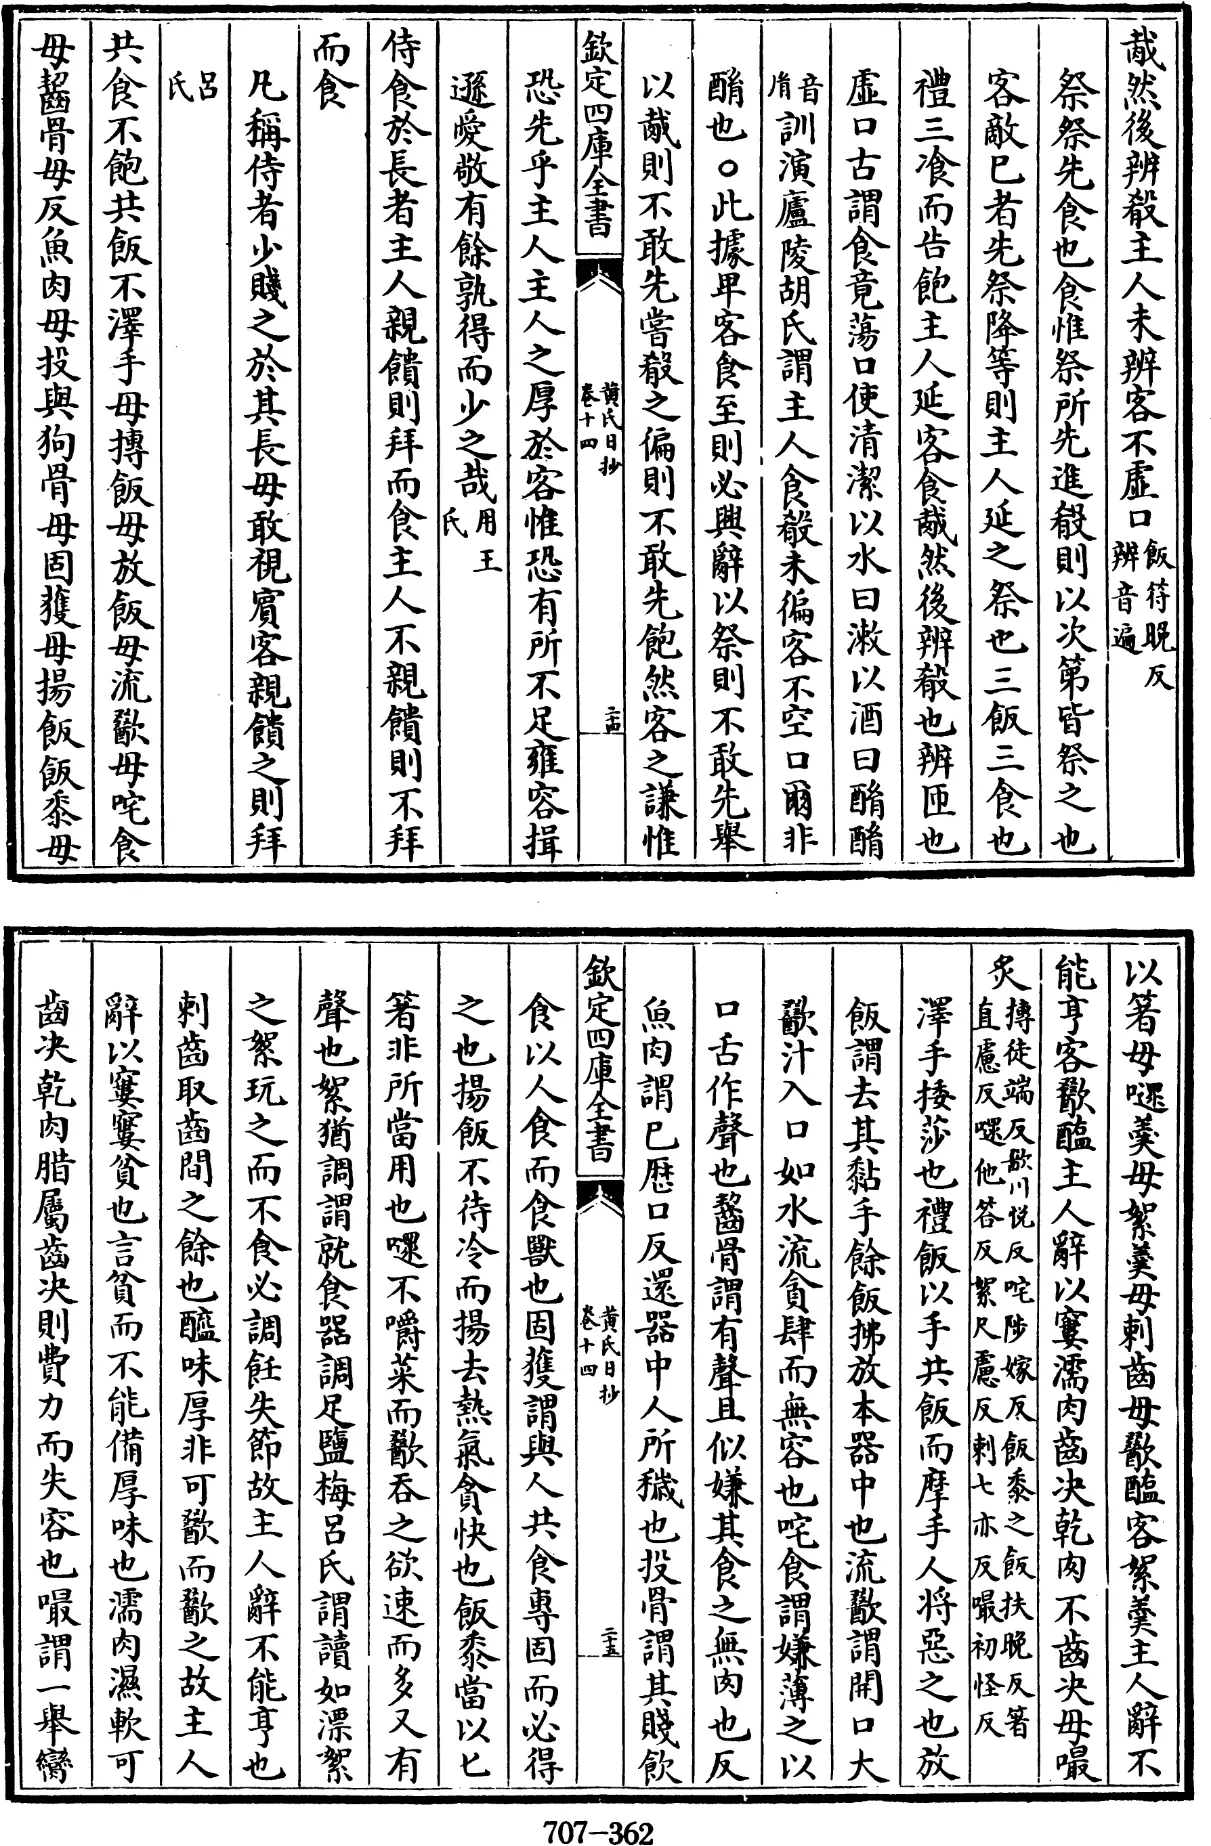 胾然後辨殽主人未辨客不虛口飯符晚反辨音遍
祭祭先食也食惟祭所先進殽則以次第皆祭之也
客敵已者先祭降等則主人延之祭也三飯三食也
禮三飡而告飽主人延客食胾然後辨殽也辨匝也
虛口古謂食竟蕩口使清潔以水曰漱以酒曰酳酳
音胤訓演廬陵胡氏謂主人食殽未徧客不空口爾非
酳也○此據卑客食至則必興辭以祭則不敢先舉
以胾則不敢先嘗殽之徧則不敢先飽然客之謙惟
欽定四庫全書
黃氏日抄
卷十四
二十四
恐先乎主人主人之厚於客惟恐有所不足雍容揖
遜愛敬有餘孰得而少之哉用王氏
侍食於長者主人親饋則拜而食主人不親饋則不拜
而食
凡稱侍者少賤之於其長毋敢視賓客親饋之則拜
呂氏
共食不飽共飯不澤手毋摶飯毋放飯毋流歠毋咤食
毋齧骨毋反魚肉毋投與狗骨毋固獲毋揚飯飯黍毋
以箸毋嚃羹毋絮羹毋刺齒毋歠醢客絮羹主人辭不
能亨客歠醢主人辭以窶濡肉齒决乾肉不齒决毋嘬
炙摶徒端反歠川悅反咤陟嫁反飯黍之飯扶晚反箸直慮反嚃他答反絮尺慮反刺七亦反嘬初怪反
澤手捼莎也禮飯以手共飯而摩手人將惡之也放
飯謂去其黏手餘飯拂放本器中也流歠謂開口大
歠汁入口如水流貪肆而無容也咤食謂嫌薄之以
口舌作聲也齧骨謂有聲且似嫌其食之無肉也反
魚肉謂已歷口反還器中人所穢也投骨謂其賤飲
欽定四庫全書
黃氏日抄
卷十四
二十五
食以人食而食獸也固獲謂與人共食專固而必得
之也揚飯不待冷而揚去熱氣貪快也飯黍當以匕
箸非所當用也嚃不嚼菜而歠吞之欲速而多又有
聲也絮猶調謂就食器調足鹽梅呂氏謂讀如漂絮
之絮玩之而不食必調飪失節故主人辭不能亨也
刺齒取齒間之餘也醢味厚非可歠而歠之故主人
辭以窶窶貧也言貧而不能備厚味也濡肉濕軟可
齒决乾肉腊屬齒决則費力而失容也嘬謂一舉臠
707-362